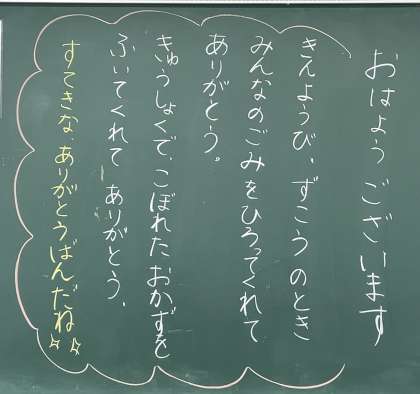 おはようございます
きんようび、ずこうのとき
みんなのごみをひろってくれて
ありがとう。
きゅうしょくで、こぼれたおかずを
ふいてくれて ありがとう、
すてきな、ありがとうばんだね